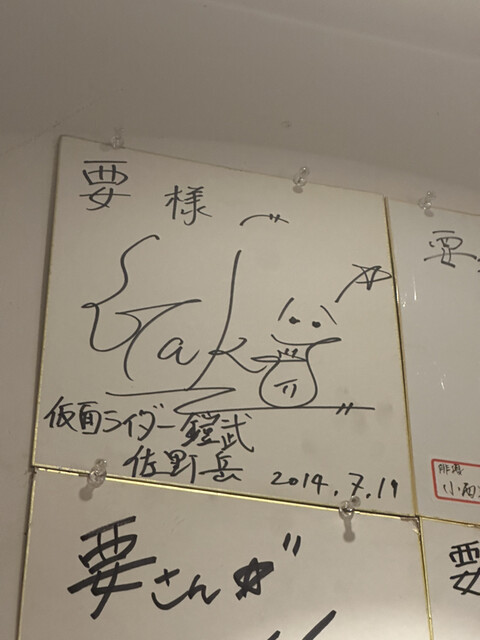 要 様
Gaku
仮面ライダー鎧武
佐野岳 2014.7.19
要
俳優
要さん江
要